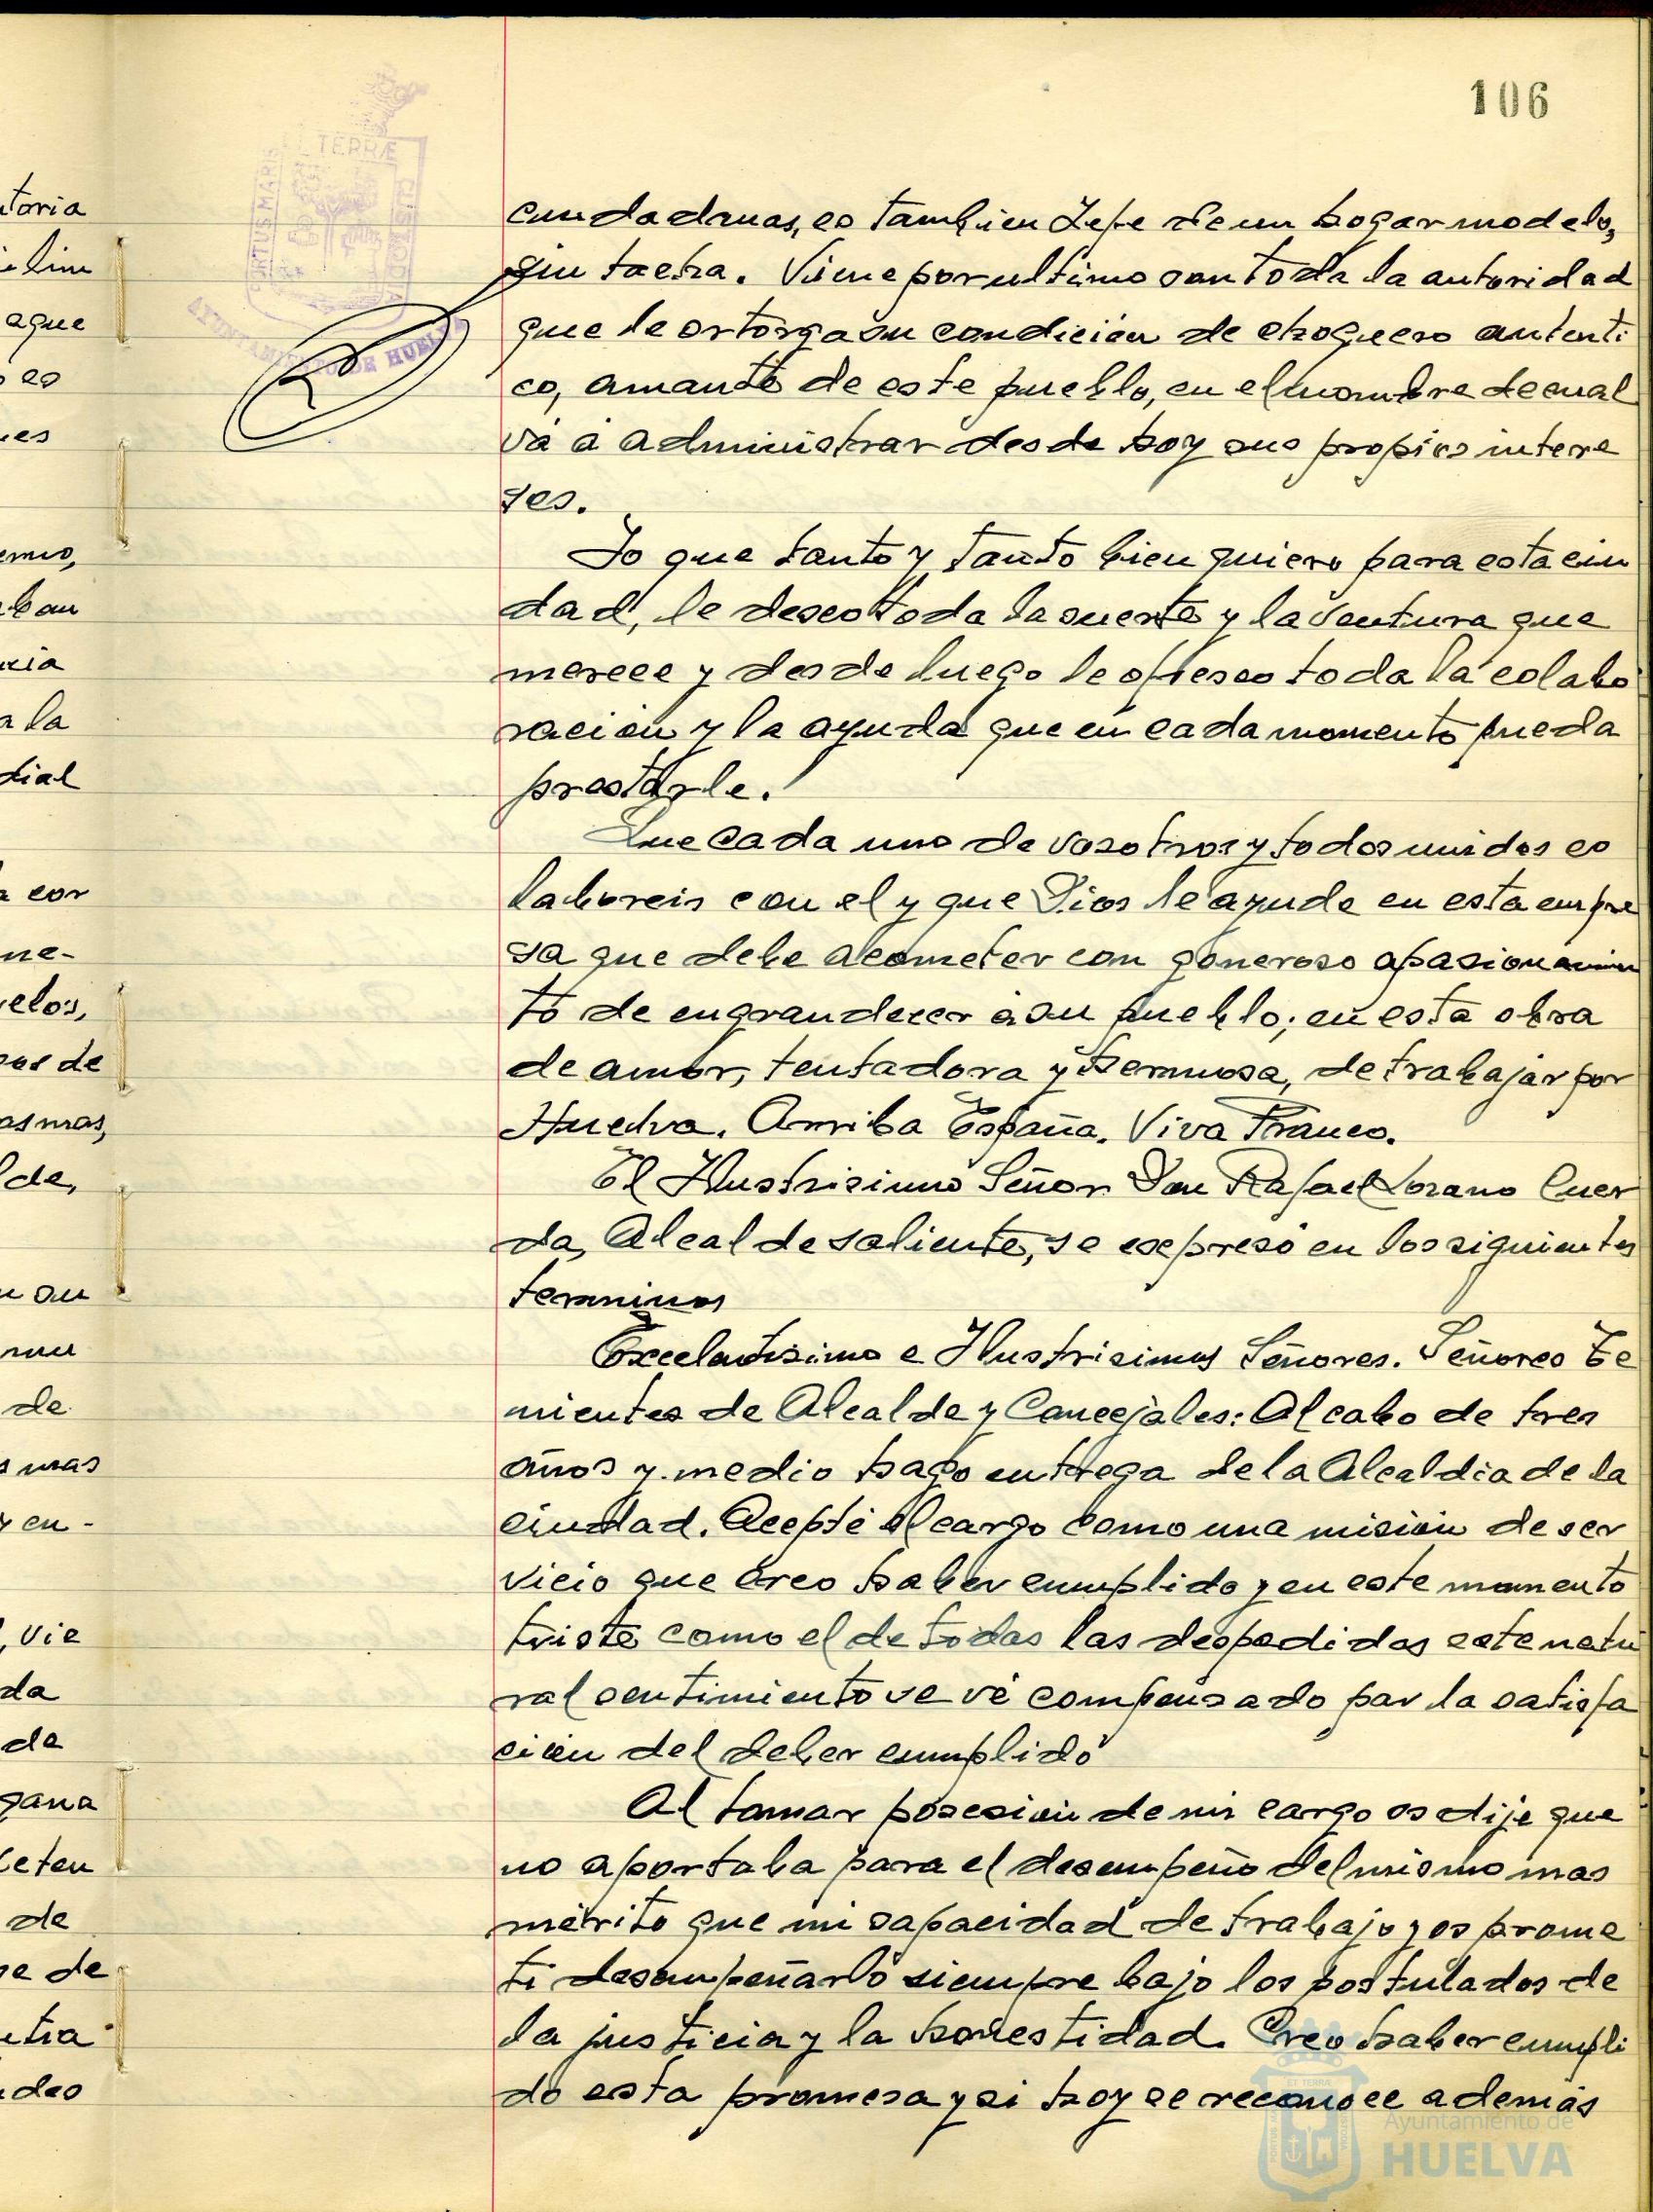 106
PORTUS MARIS ET TERRÆ CUSTODIA
AYUNTAMIENTO DE HUELVA
toria
lim
aque
es
ues
emio,
ban
a la
dial
cor
ne-
velos,
de
as mas,
lde,
su
de
mas
y en-
, vie
da
de
gana
de
de
tra
des
ciudadanas, es tambien Jefe de un hogar modelo,
sin tacha. Viene por ultimo con toda la autoridad
que le ortorga su condición de choquero autenti
co, amante de este pueblo, en el nombre de cual
vá á administrar desde hoy sus propios intere
ses.
Yo que tanto y tanto bien quiero para esta ciu
dad, le deseo toda la suerte y la ventura que
merece y desde luego le ofresco toda la colabo
racion y la ayuda que en cada momento pueda
prestarle.
Que cada uno de vosotros y todos unidos co
laboreis con el y que Dios le ayude en esta empre
sa que debe acometer con generoso apasionamien
to de engrandecer á su pueblo; en esta obra
de amor, tentadora y hermosa, de trabajar por
Huelva. Arriba España. Viva Franco.
El Ilustrisimo Señor Don Rafael Lozano Cuer
da, Alcalde saliente, se expresó en los siguientes
terminos
Excelentisimo e Ilustrisimos Señores. Señores Te
nientes de Alcalde y Concejales: Al cabo de tres
años y medio hago entrega de la Alcaldia de la
ciudad. Acepté el cargo como una misión de ser
vicio que creo haber cumplido y en este momento
triste como el de todas las despedidas este natu
ral sentimiento se vé compensado por la satisfa
ción del deber cumplido
Al tomar posesión de mi cargo os dije que
no aportaba para el desempeño del mismo mas
mérito que mi capacidad de trabajo y os prome
ti desempeñarlo siempre bajo los postulados de
la justicia y la honestidad. Creo haber cumpli
do esta promesa y si hoy se reconoce además
Ayuntamiento de
HUELVA